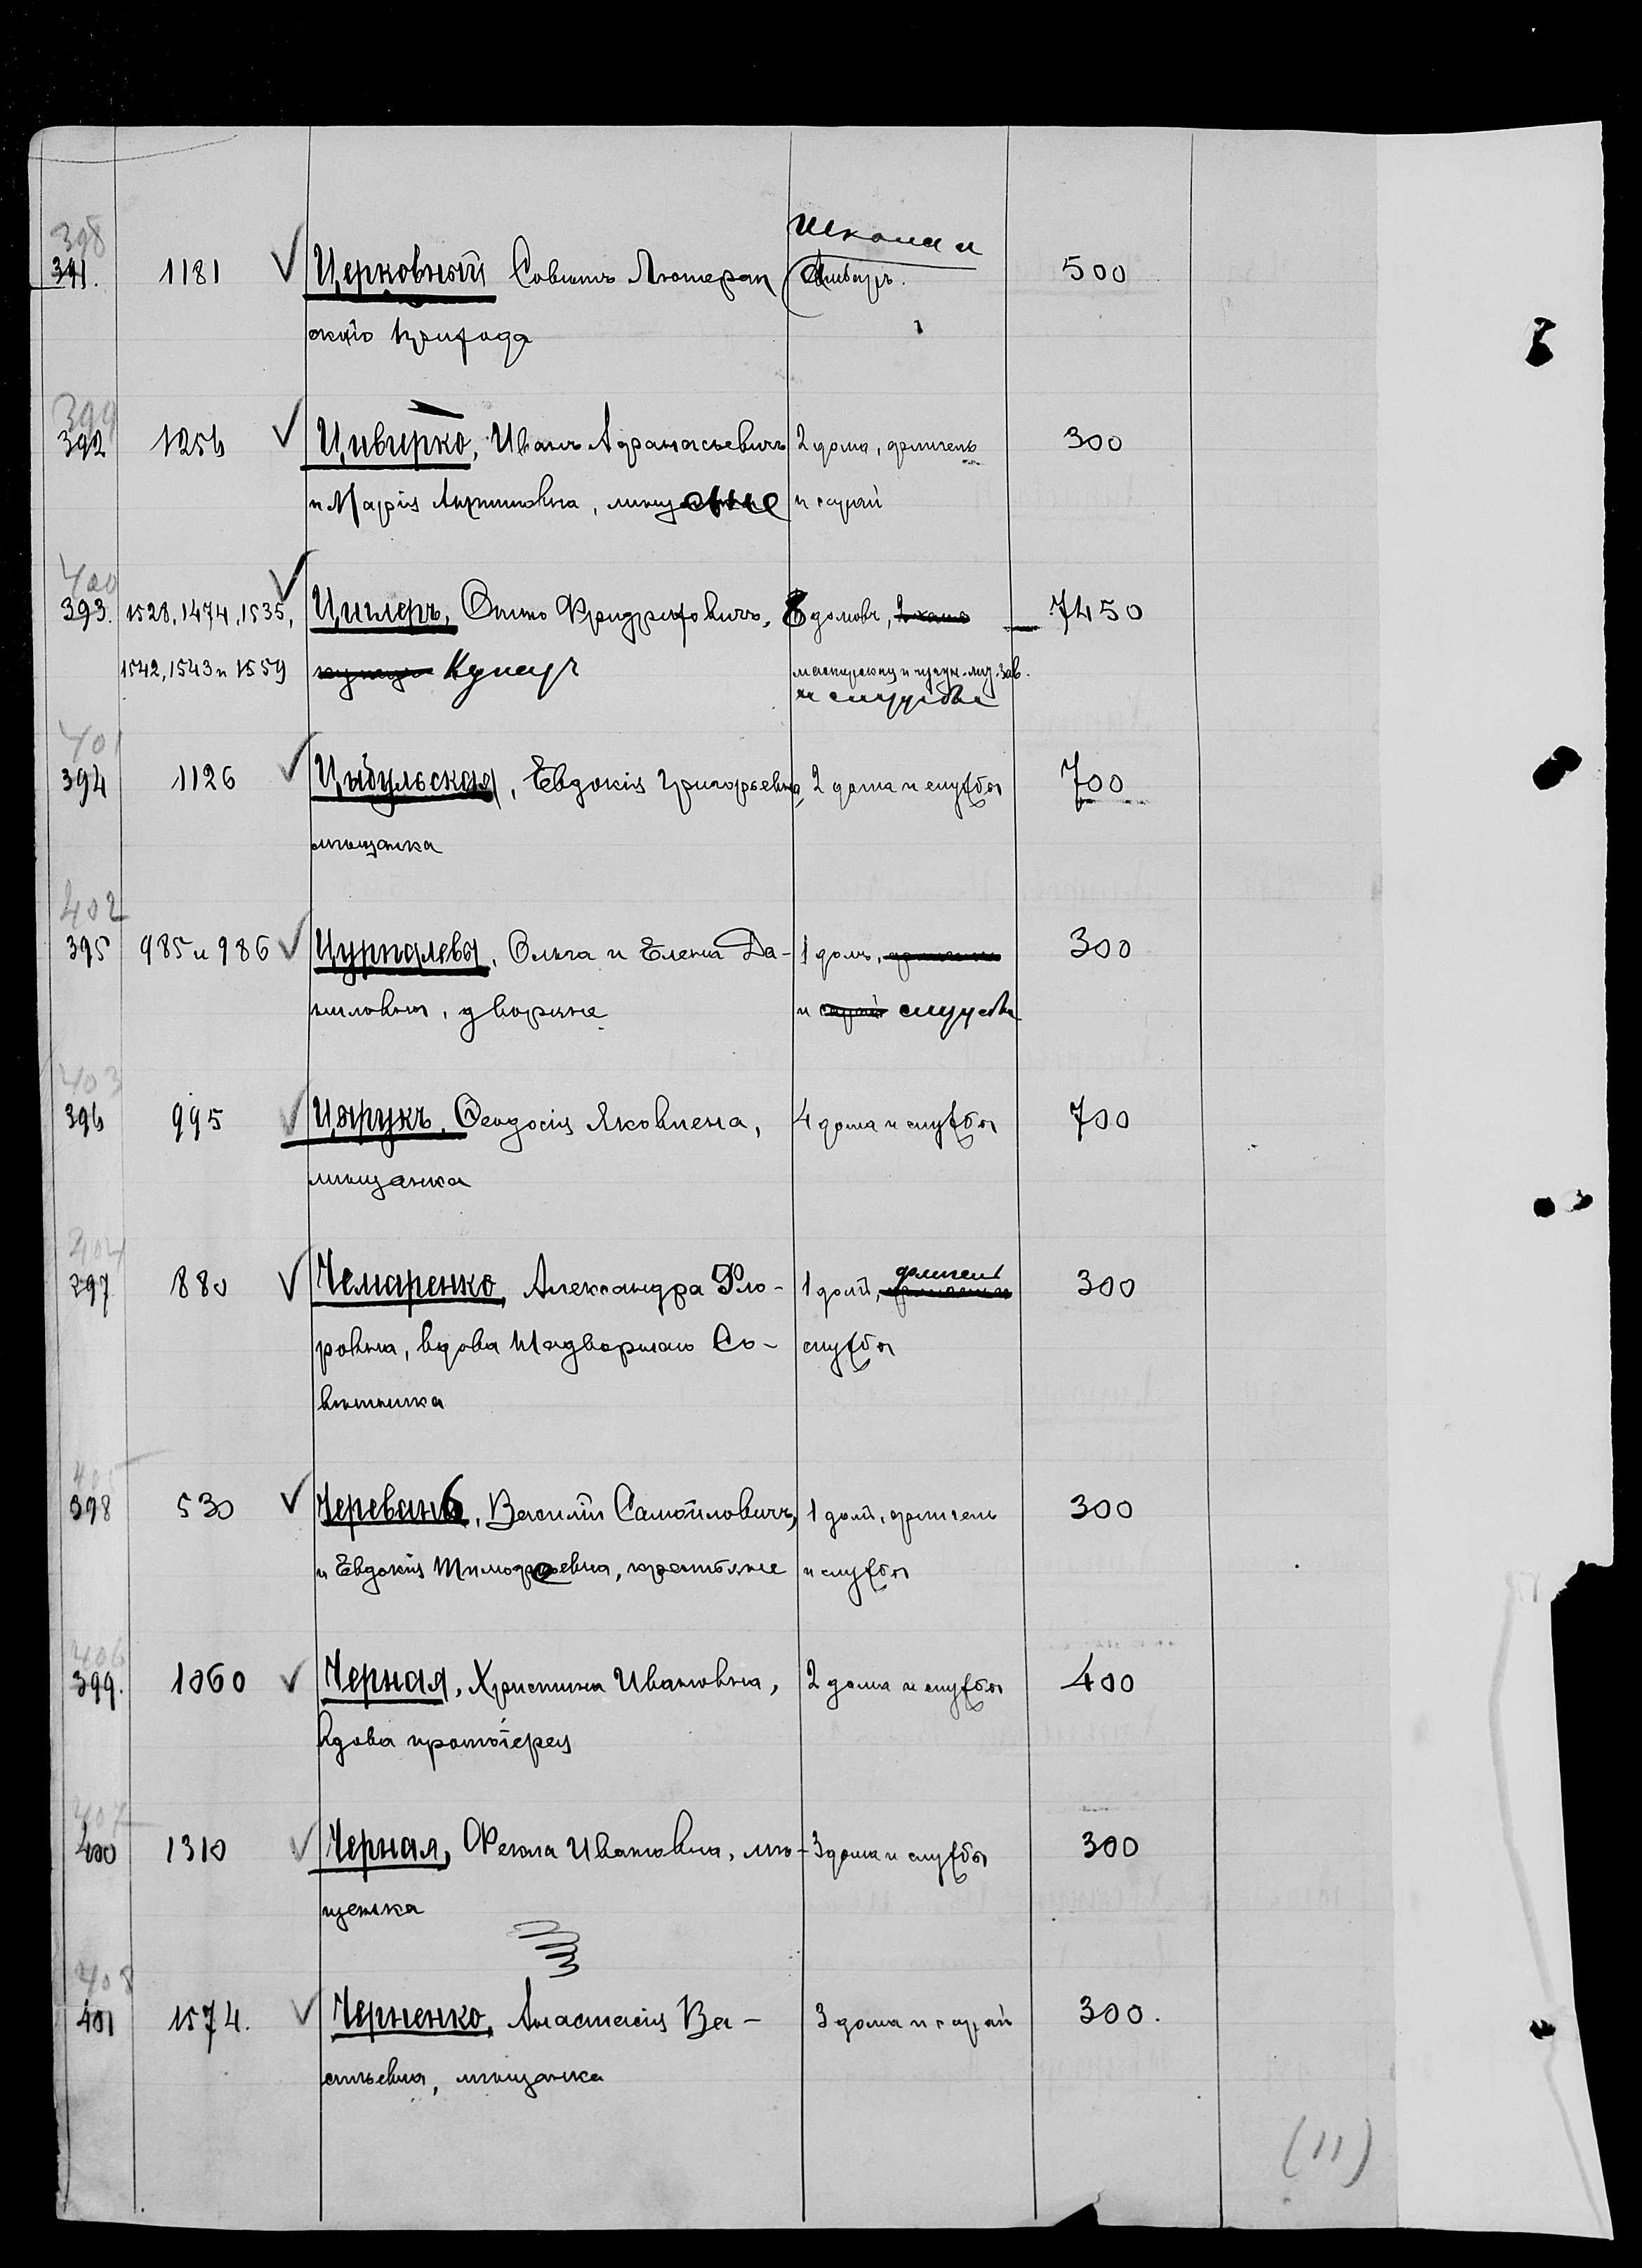 398 Школа и
391. 1181 Церковный Совѣтъ Лютеран амбаръ. 500
скаго прихода
399
392 1256 Цивирко, Иванъ Афанасьевичъ 2 дома, флигель 300
и Марія мѣщане и сарай
400
393. 1528, 1474, 1535, Циглеръ, Отто Фридриховичъ, 8 домовъ, 7450
1542, 1543 и 1559 Купецъ мастерскія и чугун.-лит. зав.
и службы
401
394 1126 Цыбульская, Евдокія Григорьевна, 2 дома и службы 700
мѣщанка
402
395 985 и 986 Цурпалевы, Ольга и Елена Да- 1 домъ, 300
ниловны, дворяне и сарай службы
403
396 995 Цярукъ, Феодосія Яковлевна, 4 дома и службы 700
мѣщанка
404 флигель
397 880 Чемаренко, Александра Фло- 1 домъ, 300
ровна, вдова Надворнаго Со- службы
вѣтника
405
398 530 Черевань, Василій Самойловичъ, 1 домъ, флигель 300
и Евдокія Тимофеевна, крестьяне и службы
406
399. 1060 Черная, Христина Ивановна, 2 дома и службы 400
вдова протоіерея
407
400 1310 Черная, Фекла Ивановна, мѣ- 3 дома и службы 300
щанка
408
401 1574. Черненко, Анастасія Ва- 3 дома и сарай 300.
сильевна, мѣщанка
(11)